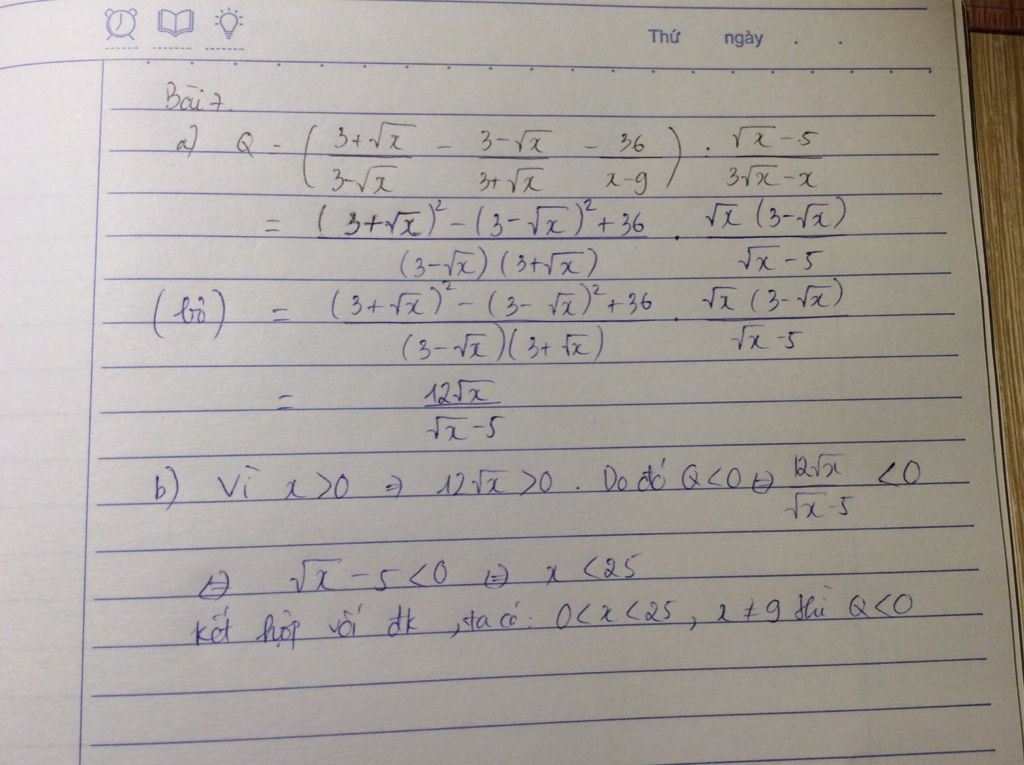 Thứ ngày . .
Bài 7.
a) Q = ( (3+√x)/(3-√x) - (3-√x)/(3+√x) - 36/(x-9) ) : (√x-5)/(3√x-x)
= ((3+√x)² - (3-√x)² + 36)/((3-√x)(3+√x)) . (√x(3-√x))/(√x-5)
(bỏ) = ((3+√x)² - (3-√x)² + 36)/((3-√x)(3+√x)) . (√x(3-√x))/(√x-5)
= 12√x/(√x-5)
b) Vì x>0 ⇒ 12√x>0. Do đó Q<0 ⇔ 12√x/(√x-5) <0
⇔ √x-5<0 ⇔ x<25
kết hợp với đk, ta có: 0<x<25, x≠9 thì Q<0